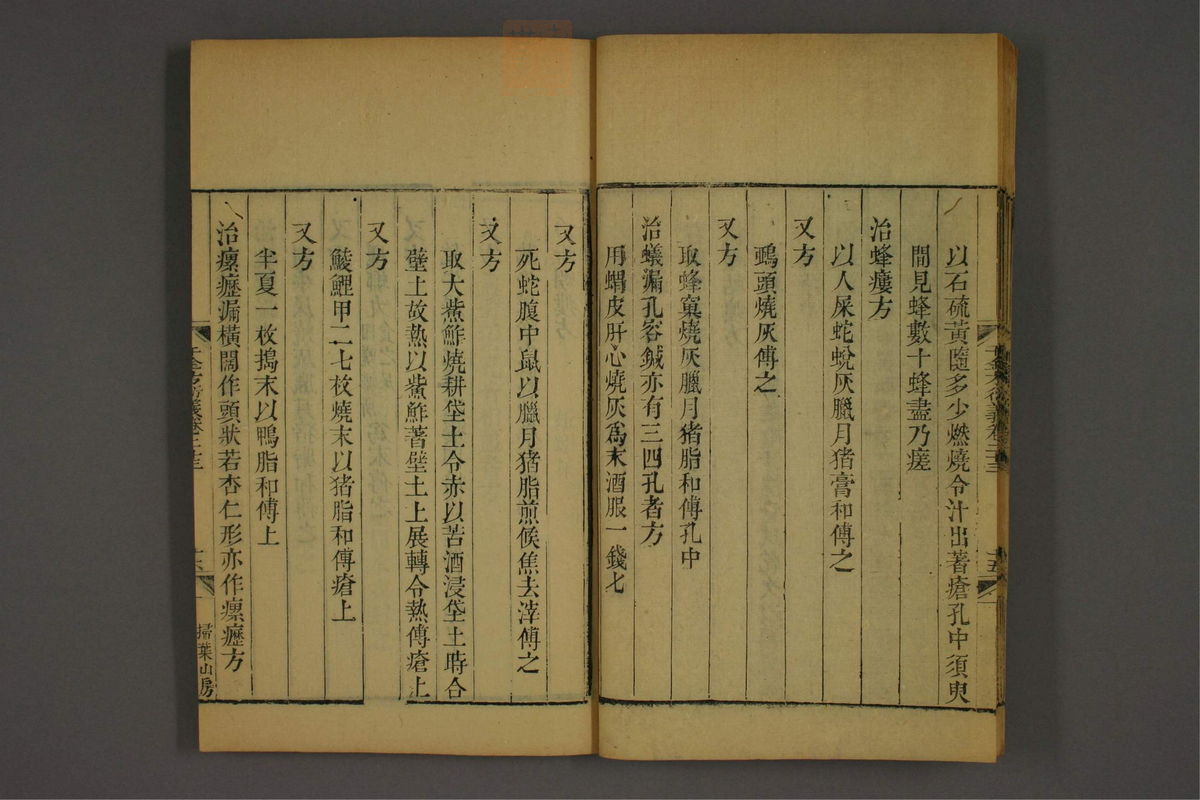 以石硫黃隨多少燃燒令汁出著瘡孔中須臾
間見蜂數十蜂盡乃瘥
治蜂瘻方
以人屎蛇蛻灰臘月猪膏和傅之
又方
鴟頭燒灰傅之
又方
取蜂窠燒灰臘月猪脂和傅孔中
治蟻漏孔容鍼亦有三四孔者方
用蝟皮肝心燒灰爲末酒服一錢七
又方
死蛇腹中鼠以臘月猪脂煎候焦去滓傅之
又方
取大鮆鮓燒耕垡土令赤以苦酒浸垡土時合
壁土故熱以鮆鮓著壁土上展轉令熱傅瘡上
又方
鯪鯉甲二七枚燒末以猪脂和傅瘡上
又方
半夏一枚搗末以鴨脂和傅上
治瘰癧漏橫闊作頭狀若杏仁形亦作瘰癧方
千金方衍義卷二十三
十六
掃葉山房